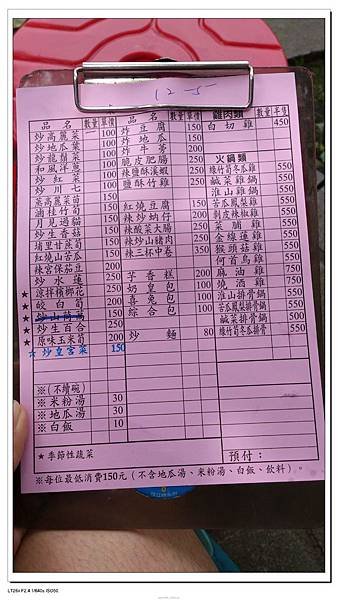 12-5
品 名 數量 單價
炒高麗菜 100
炒地瓜葉 100
炒龍鬚菜 100
和風洋蔥 100
炒紅菜 100
炒川七 100
蒸高麗菜苗 150
滷桂竹筍 150
月見過貓 150
炒生香菇 200
埔里甘蔗筍 150
紅燒山苦瓜 150
辣宮保茄豆 200
炒水蓮
★涼拌檳榔花 200
★皎白筍 200
★炒生百合 200
★原味玉米筍 200
★炒皇宮菜 150
※(不續碗)
※米粉湯 30
※地瓜湯 30
※白飯 10
★季節性蔬菜
品 名 數量 單價
炸豆腐 150
炸地瓜 150
脆皮肥腸 250
辣鹽酥溪蝦 250
鹽酥竹雞
紅燒豆腐 150
辣炒蚋仔 200
辣酸菜大腸 200
辣炒山豬肉 200
辣三杯中卷
芋香糕 200
奶皇包 100
喜兔包 100
綜合包 100
炒麵 80
雞肉類 數量 半隻
白切雞 450
火鍋類
綠竹筍冬瓜雞 550
鹹菜雞鍋 550
淮山雞鍋 550
苦瓜鳳梨雞 550
剝皮辣椒雞 550
菜脯雞 550
金線蓮雞 550
猴頭菇雞 550
何首烏雞 550
麻油雞 750
燒酒雞 750
淮山排骨鍋 550
苦瓜鳳梨排骨鍋 550
鹹菜排骨鍋 500
綠竹筍冬瓜排骨 550
預付:
※每位最低消費150元(不含地瓜湯、米粉湯、白飯、飲料)。
LT26ii F2.4 1/640s ISO50